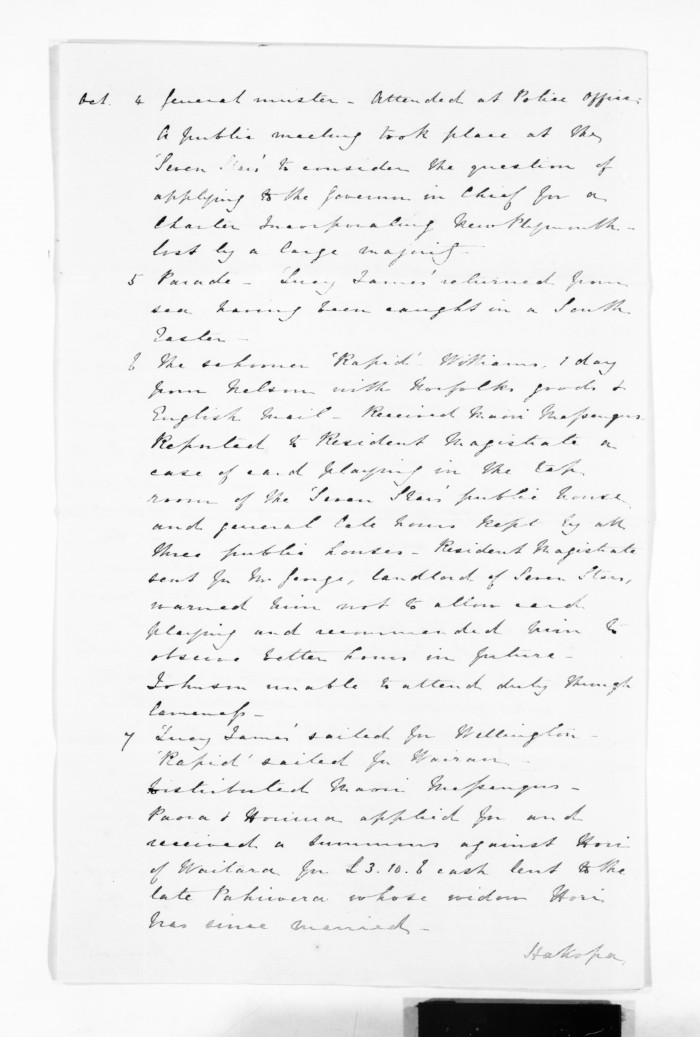 Oct. 4 General muster - Attended at Police Office;
A public meeting took place at the
'Seven Stars' to consider the question of
applying to the Governor in Chief for a
Charter Incorporating New Plymouth -
lost by a large majority -
5 Parade - 'Lucy James' returned from
sea having been caught in a South
Easter -
6 The schooner 'Rapid' - Williams, 1 day
from Nelson with Norfolks goods &
English Mail - Received Maori Messengers
Reported to Resident Magistrate a
case of card playing in the tap
room of the 'Seven Stars' public house
and general late hours kept by all
three public houses - Resident Magistrate
sent for Mr George, landlord of Seven Stars,
warned him not to allow card
playing and recommended him to
observe better hours in future -
Johnson unable to attend duty through
lameness -
7 'Lucy James' sailed for Wellington -
'Rapid' sailed for Wairau -
Distributed Maori Messengers -
Paora & applied for and
received a summons against Hori
of Waitara for £3.10.6 cash lent to the
late whose widow Hori
has since married -
Hakopa,